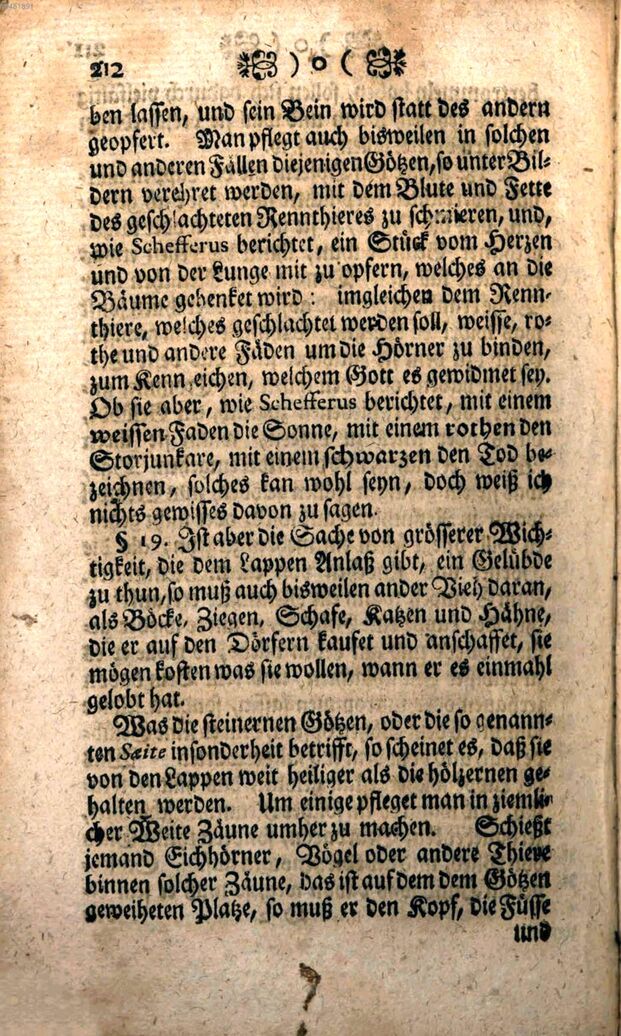 212 ) o (
ben lassen, und sein Bein wird statt des andern
geopfert. Man pflegt auch bisweilen in solchen
und anderen Fällen diejenigen Götzen, so unter Bil-
dern verehret werden, mit dem Blute und Fette
des geschlachteten Rennthieres zu schmieren, und,
wie Schefferus berichtet, ein Stück vom Herzen
und von der Lunge mit zu opfern, welches an die
Bäume gehenket wird: imgleichen dem Renn-
thiere, welches geschlachtet werden soll, weisse, ro-
the und andere Fäden um die Hörner zu binden,
zum Kennzeichen, welchem Gott es gewidmet sey.
Ob sie aber, wie Schefferus berichtet, mit einem
weissen Faden die Sonne, mit einem rothen den
Storjunkare, mit einem schwarzen den Tod be-
zeichnen, solches kan wohl seyn, doch weiß ich
nichts gewisses davon zu sagen.
§ 19. Ist aber die Sache von grösserer Wich-
tigkeit, die dem Lappen Anlaß gibt, ein Gelübde
zu thun, so muß auch bisweilen ander Vieh daran,
als Böcke, Ziegen, Schafe, Katzen und Hähne,
die er auf den Dörfern kaufet und anschaffet, sie
mögen kosten was sie wollen, wann er es einmahl
gelobt hat.
Was die steinernen Götzen, oder die so genann-
ten Sæite insonderheit betrifft, so scheinet es, daß sie
von den Lappen weit heiliger als die hölzernen ge-
halten werden. Um einige pfleget man in ziemli-
cher Weite Zäune umher zu machen. Schießt
jemand Eichhörner, Vögel oder andere Thiere
binnen solcher Zäune, das ist auf dem dem Götzen
geweiheten Platze, so muß er den Kopf, die Füsse
und